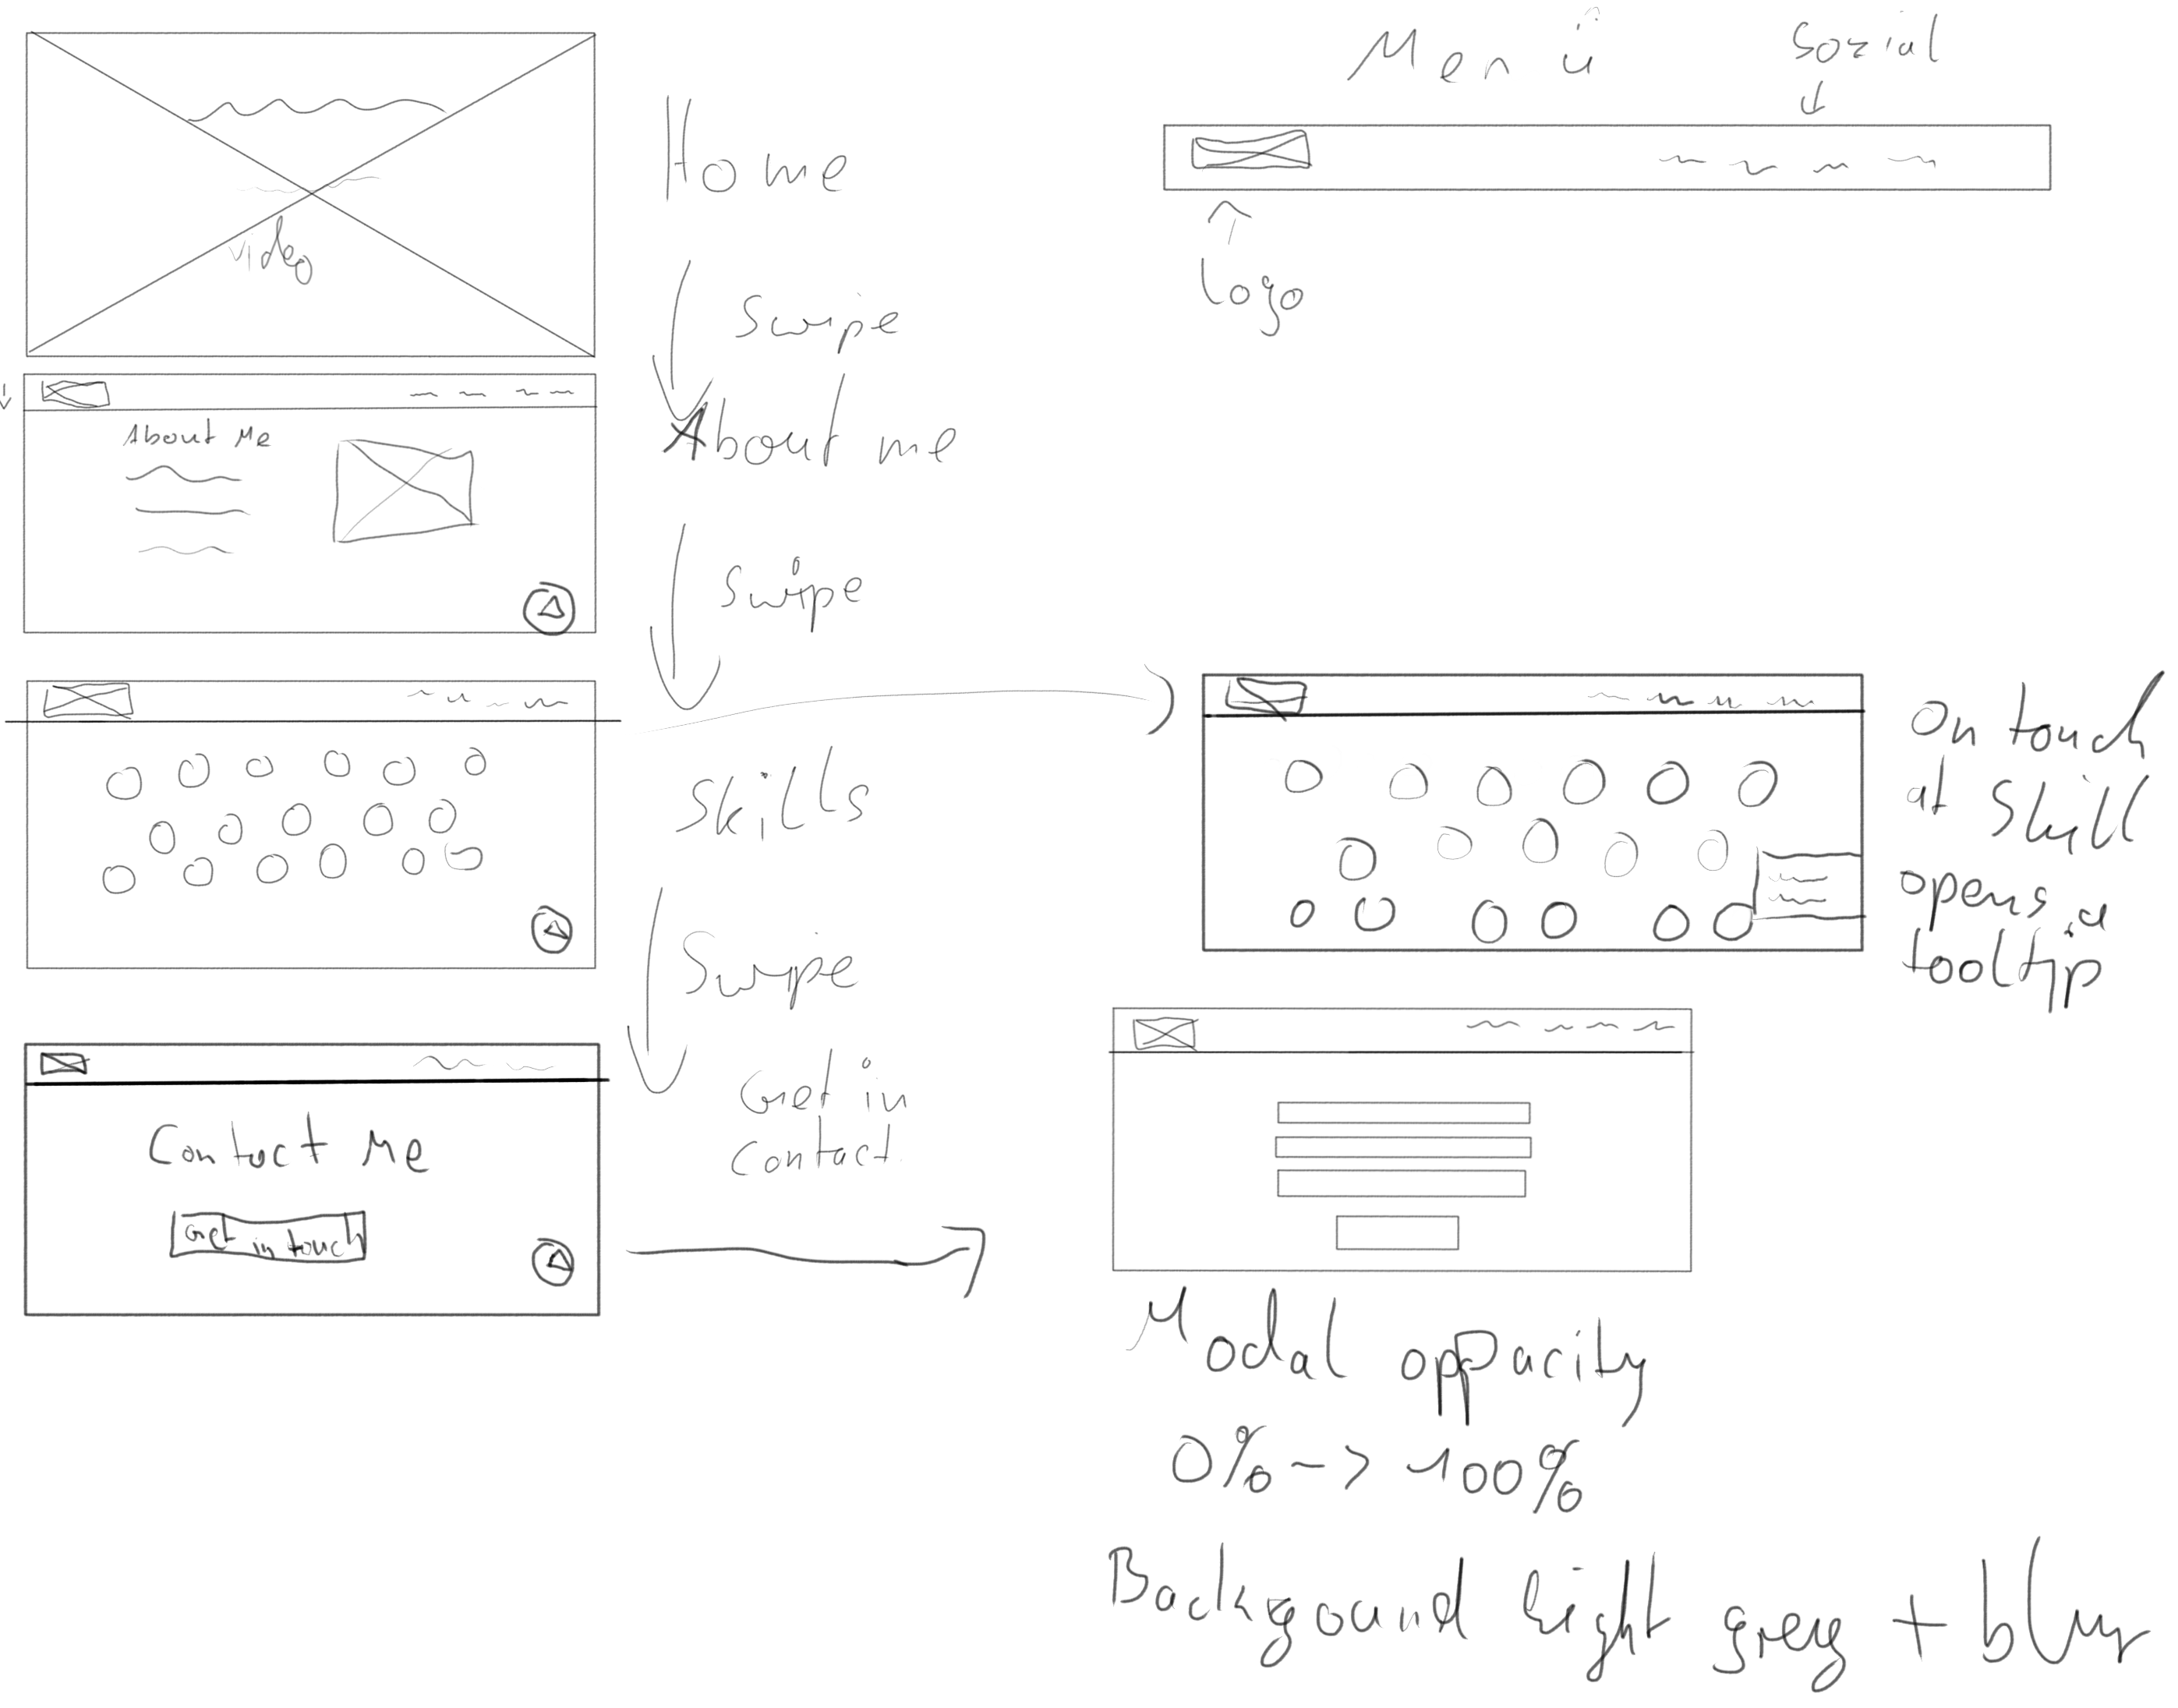 video
Home
Swipe
About me
About Me
Swipe
Skills
Swipe
Get in
contact
Contact Me
Get in touch
Menü
Sozial
Logo
On touch
at Skill
opens a
tooltip
Modal oppacity
0% -> 100%
Backgound light grey + blur